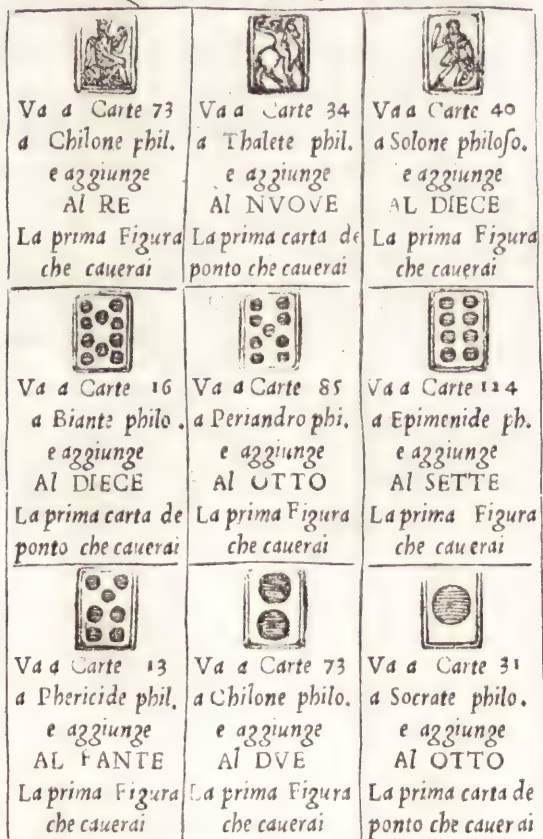 Va a Carte 73
a Chilone phil.
e aggiunge
Al RE
La prima Figura
che cauerai
Va a Carte 34
a Thalete phil.
e aggiunge
Al NVOVE
La prima carta de
ponto che cauerai
Va a Carte 40
a Solone philoſo.
e aggiunge
AL DIECE
La prima Figura
che cauerai
Va a Carte 16
a Biante philo.
e aggiunge
Al DIECE
La prima carta de
ponto che cauerai
Va a Carte 85
a Periandro phi.
e aggiunge
Al OTTO
La prima Figura
che cauerai
Va a Carte 124
a Epimenide ph.
e aggiunge
Al SETTE
La prima Figura
che cauerai
Va a Carte 13
a Phericide phil.
e aggiunge
AL FANTE
La prima Figura
che cauerai
Va a Carte 73
a Chilone philo.
e aggiunge
Al DVE
La prima Figura
che cauerai
Va a Carte 31
a Socrate philo.
e aggiunge
Al OTTO
La prima carta de
ponto che cauerai